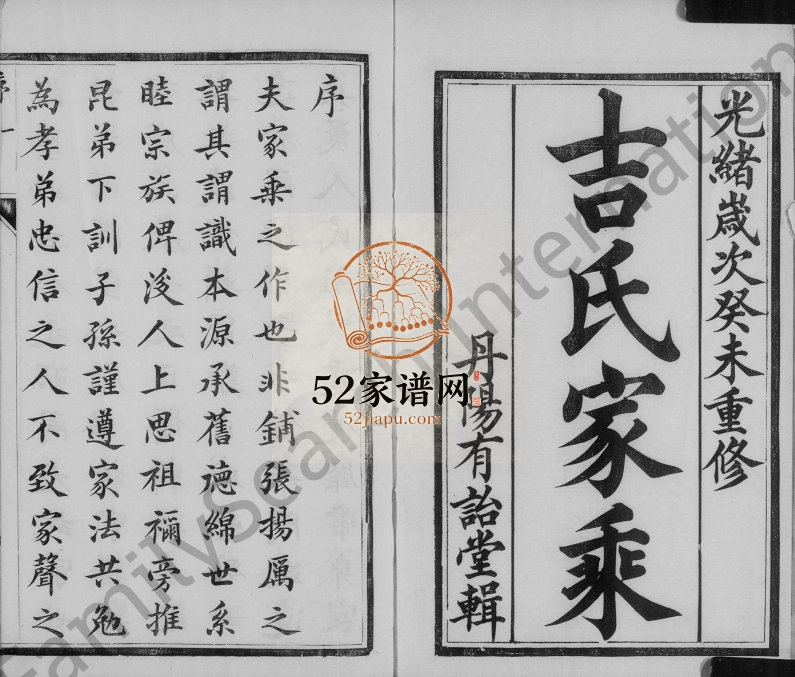 光緒歲次癸未重修
吉氏家乘
丹陽有詒堂輯
序
夫家乘之作也非鋪張揚厲之
謂其謂識本源承舊德綿世系
睦宗族俾後人上思祖禰旁推
昆弟下訓子孫謹遵家法共勉
為孝弟忠信之人不致家聲之
序 一
52家谱网
52jiapu.com
FamilySearch International